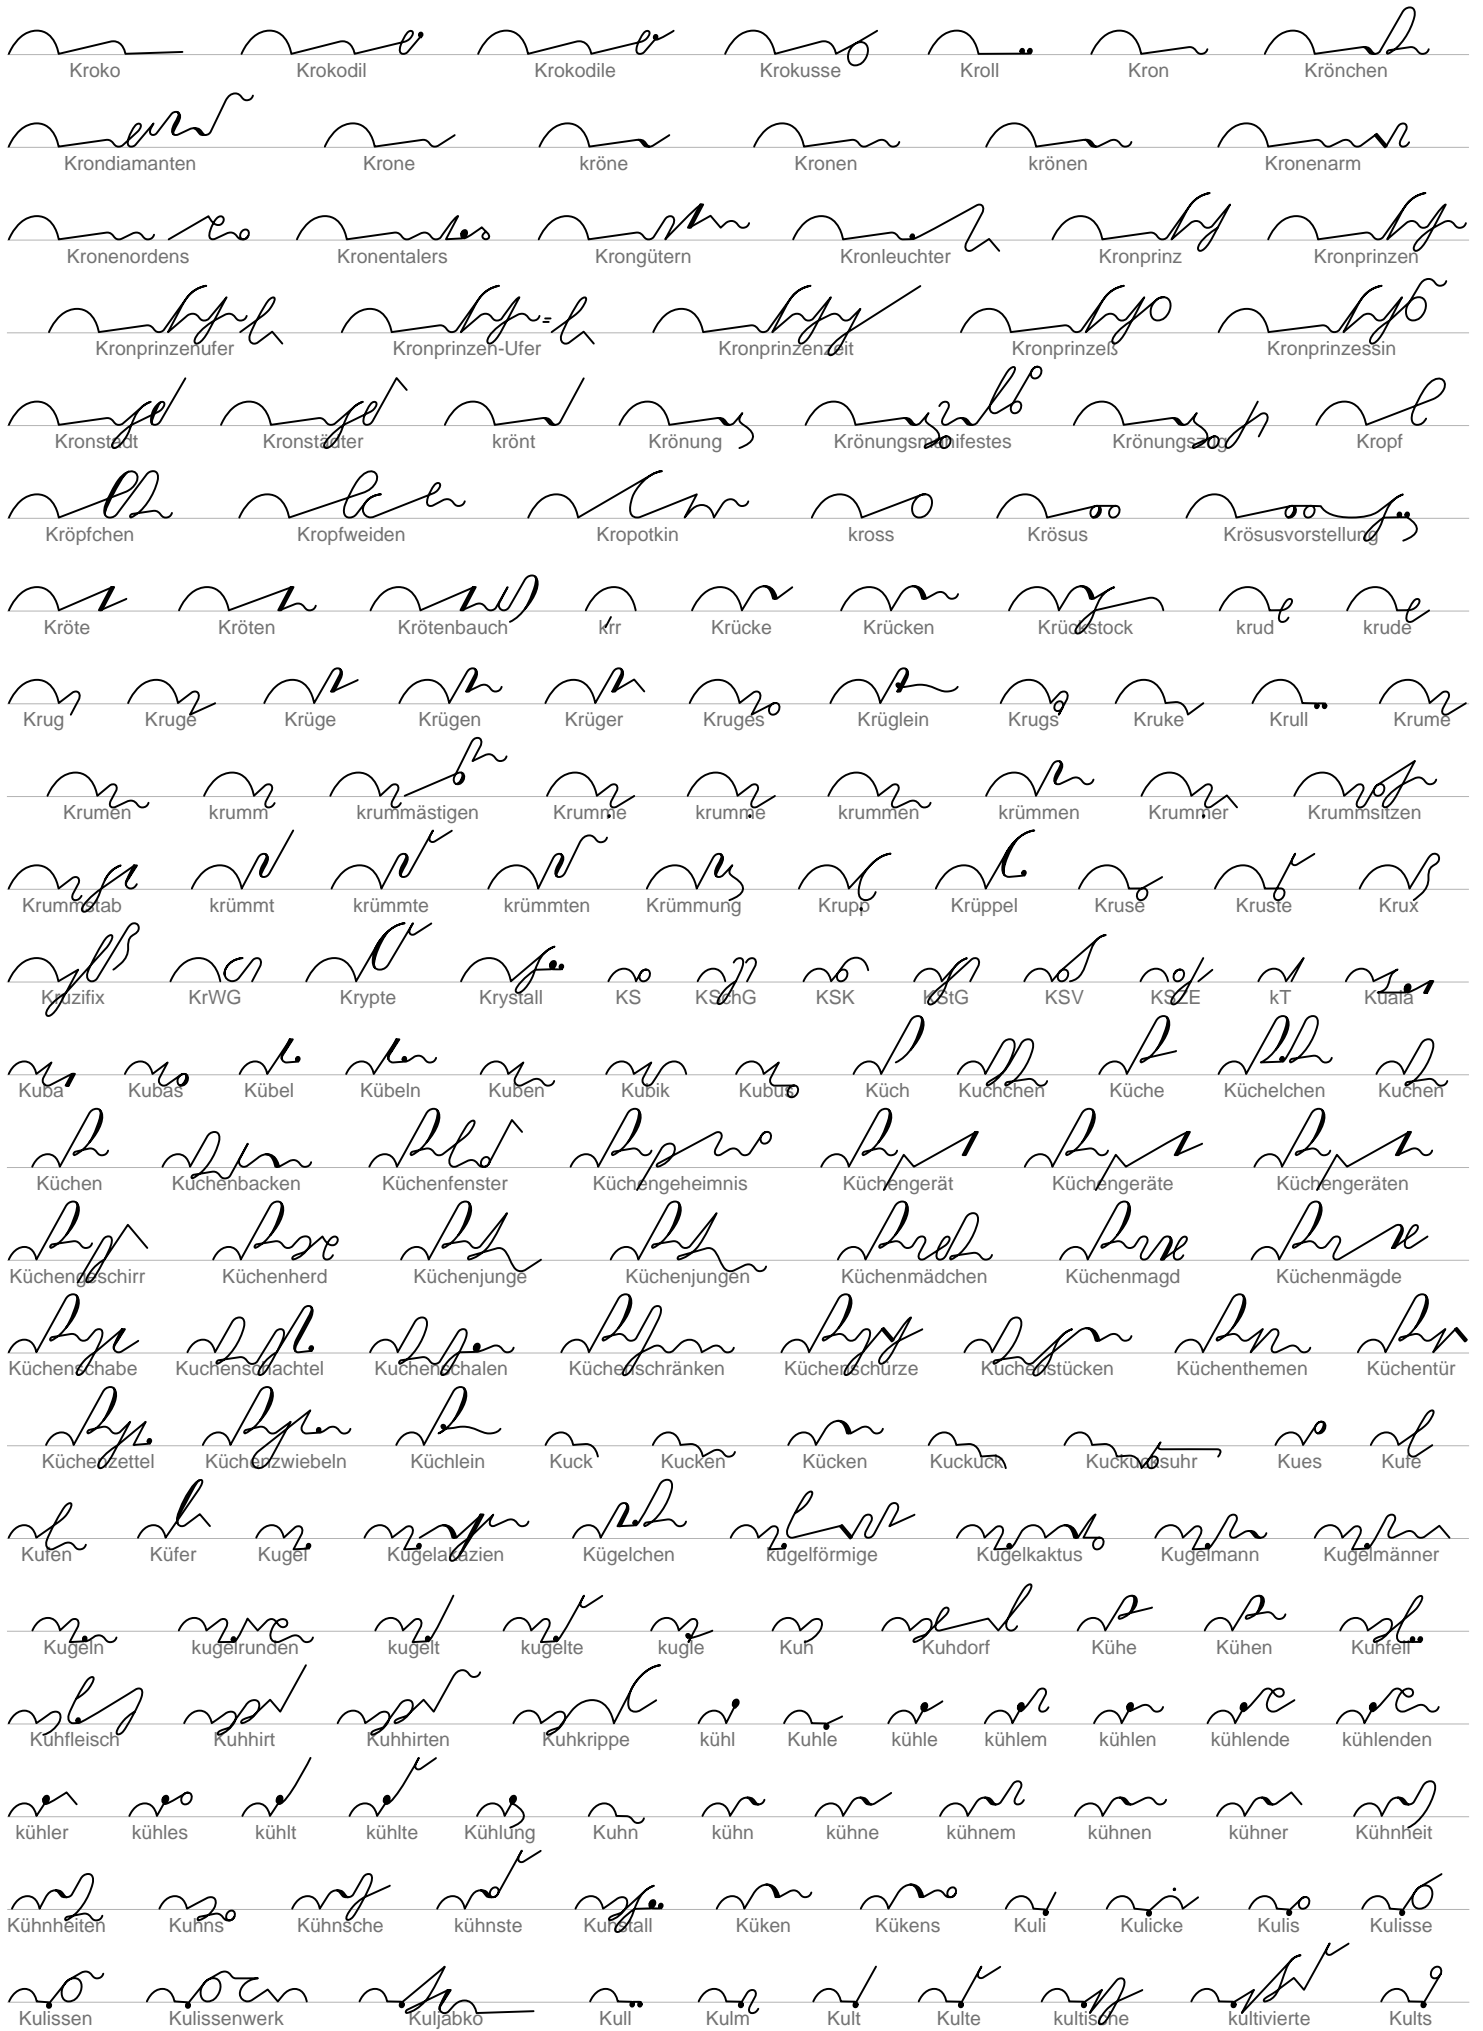 Kroko Krokodil Krokodile Krokusse Kroll Kron Krönchen
Krondiamanten Krone kröne Kronen krönen Kronenarm
Kronenordens Kronentalers Krongütern Kronleuchter Kronprinz Kronprinzen
Kronprinzenufer Kronprinzen-Ufer Kronprinzenzeit Kronprinzeß Kronprinzessin
Kronstadt Kronstädter krönt Krönung Krönungsmanifestes Krönungszug Kropf
Kröpfchen Kropfweiden Kropotkin kross Krösus Krösusvorstellung
Kröte Kröten Krötenbauch krr Krücke Krücken Krückstock krud krude
Krug Kruge Krüge Krügen Krüger Kruges Krüglein Krugs Kruke Krull Krume
Krumen krumm krummästigen Krumme krumme krummen krümmen Krummer Krummsitzen
Krummstab krümmt krümmte krümmten Krümmung Krupp Krüppel Kruse Kruste Krux
Kruzifix KrWG Krypte Krystall KS KSchG KSK KStG KSV KSZE kT Kuala
Kuba Kubas Kübel Kübeln Kuben Kubik Kubus Küch Kuchchen Küche Küchelchen Kuchen
Küchen Kuchenbacken Küchenfenster Küchengeheimnis Küchengerät Küchengeräte Küchengeräten
Küchengeschirr Küchenherd Küchenjunge Küchenjungen Küchenmädchen Küchenmagd Küchenmägde
Küchenschabe Kuchenschachtel Kuchenschalen Küchenschränken Küchenschürze Kuchenstücken Küchenthemen Küchentür
Küchenzettel Küchenzwiebeln Küchlein Kuck Kucken Kücken Kuckuck Kuckucksuhr Kues Kufe
Kufen Küfer Kugel Kugelakazien Kügelchen kugelförmige Kugelkaktus Kugelmann Kugelmänner
Kugeln kugelrunden kugelt kugelte kugle Kuh Kuhdorf Kühe Kühen Kuhfell
Kuhfleisch Kuhhirt Kuhhirten Kuhkrippe kühl Kuhle kühle kühlem kühlen kühlende kühlenden
kühler kühles kühlt kühlte Kühlung Kuhn kühn kühne kühnem kühnen kühner Kühnheit
Kühnheiten Kuhns Kühnsche kühnste Kuhstall Küken Kükens Kuli Kulicke Kulis Kulisse
Kulissen Kulissenwerk Kuljabko Kull Kulm Kult Kulte kultische kultivierte Kults